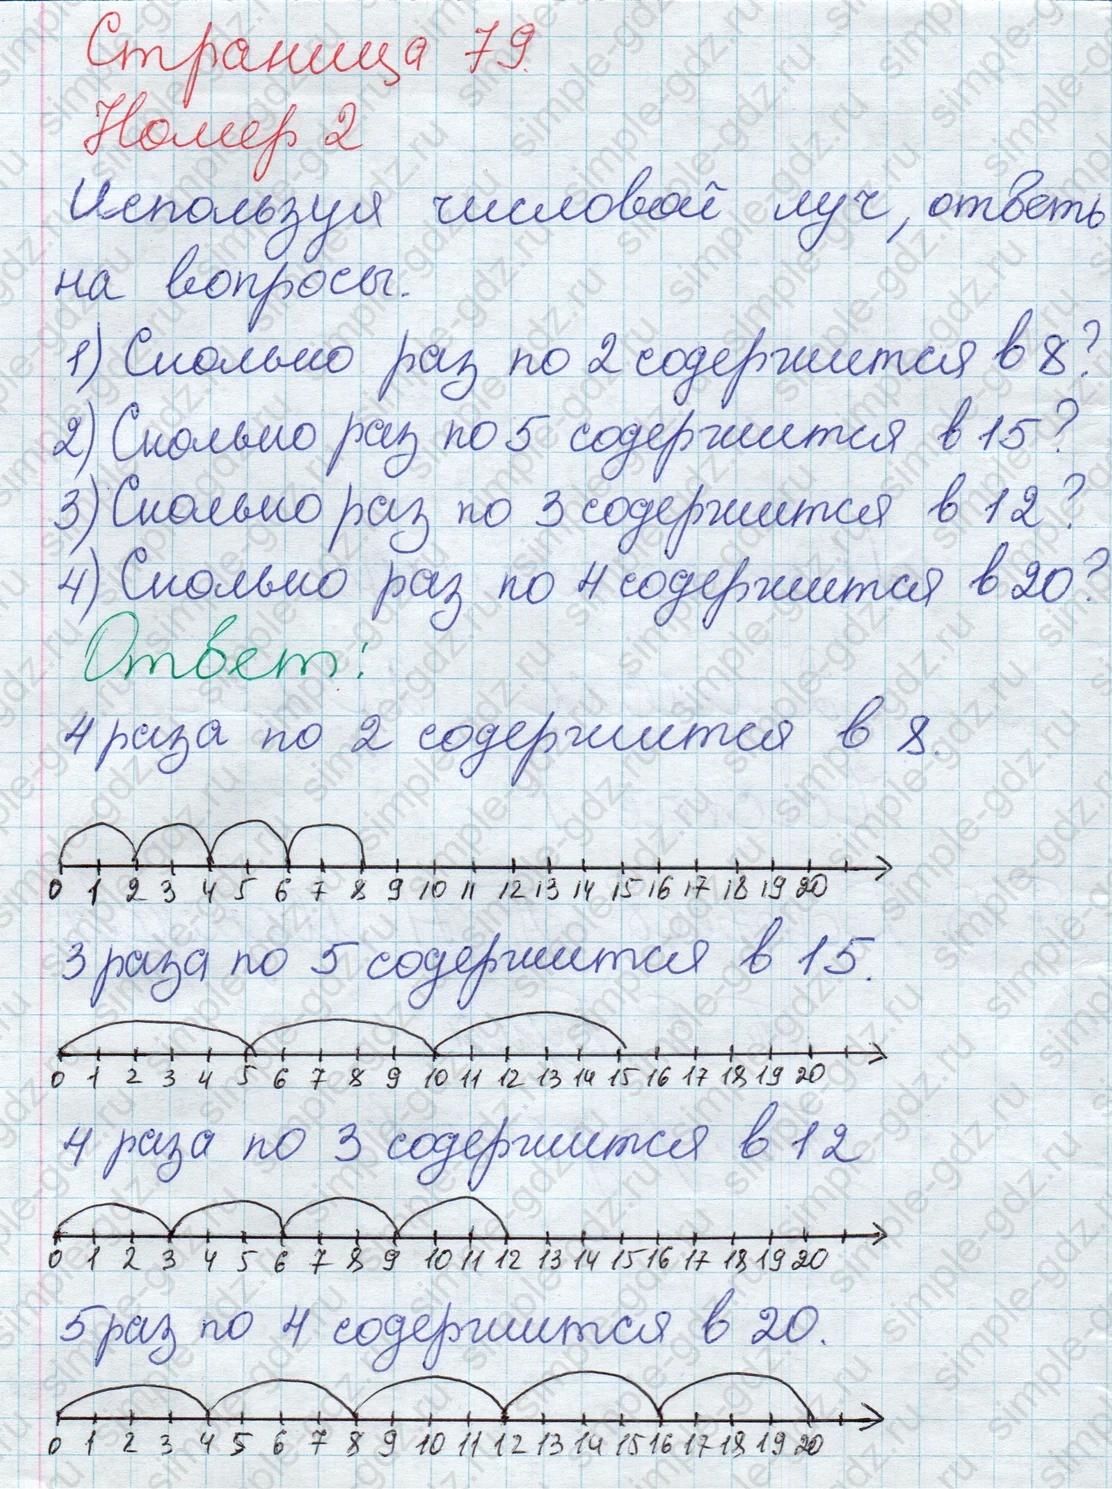 Страница 79.
Номер 2
Используя числовой луч, ответь
на вопросы.
1) Сколько раз по 2 содержится в 8?
2) Сколько раз по 5 содержится в 15?
3) Сколько раз по 3 содержится в 12?
4) Сколько раз по 4 содержится в 20?
Ответ:
4 раза по 2 содержится в 8.
0 1 2 3 4 5 6 7 8 9 10 11 12 13 14 15 16 17 18 19 20
3 раза по 5 содержится в 15.
0 1 2 3 4 5 6 7 8 9 10 11 12 13 14 15 16 17 18 19 20
4 раза по 3 содержится в 12
0 1 2 3 4 5 6 7 8 9 10 11 12 13 14 15 16 17 18 19 20
5 раз по 4 содержится в 20.
0 1 2 3 4 5 6 7 8 9 10 11 12 13 14 15 16 17 18 19 20
simple-gdz.ru